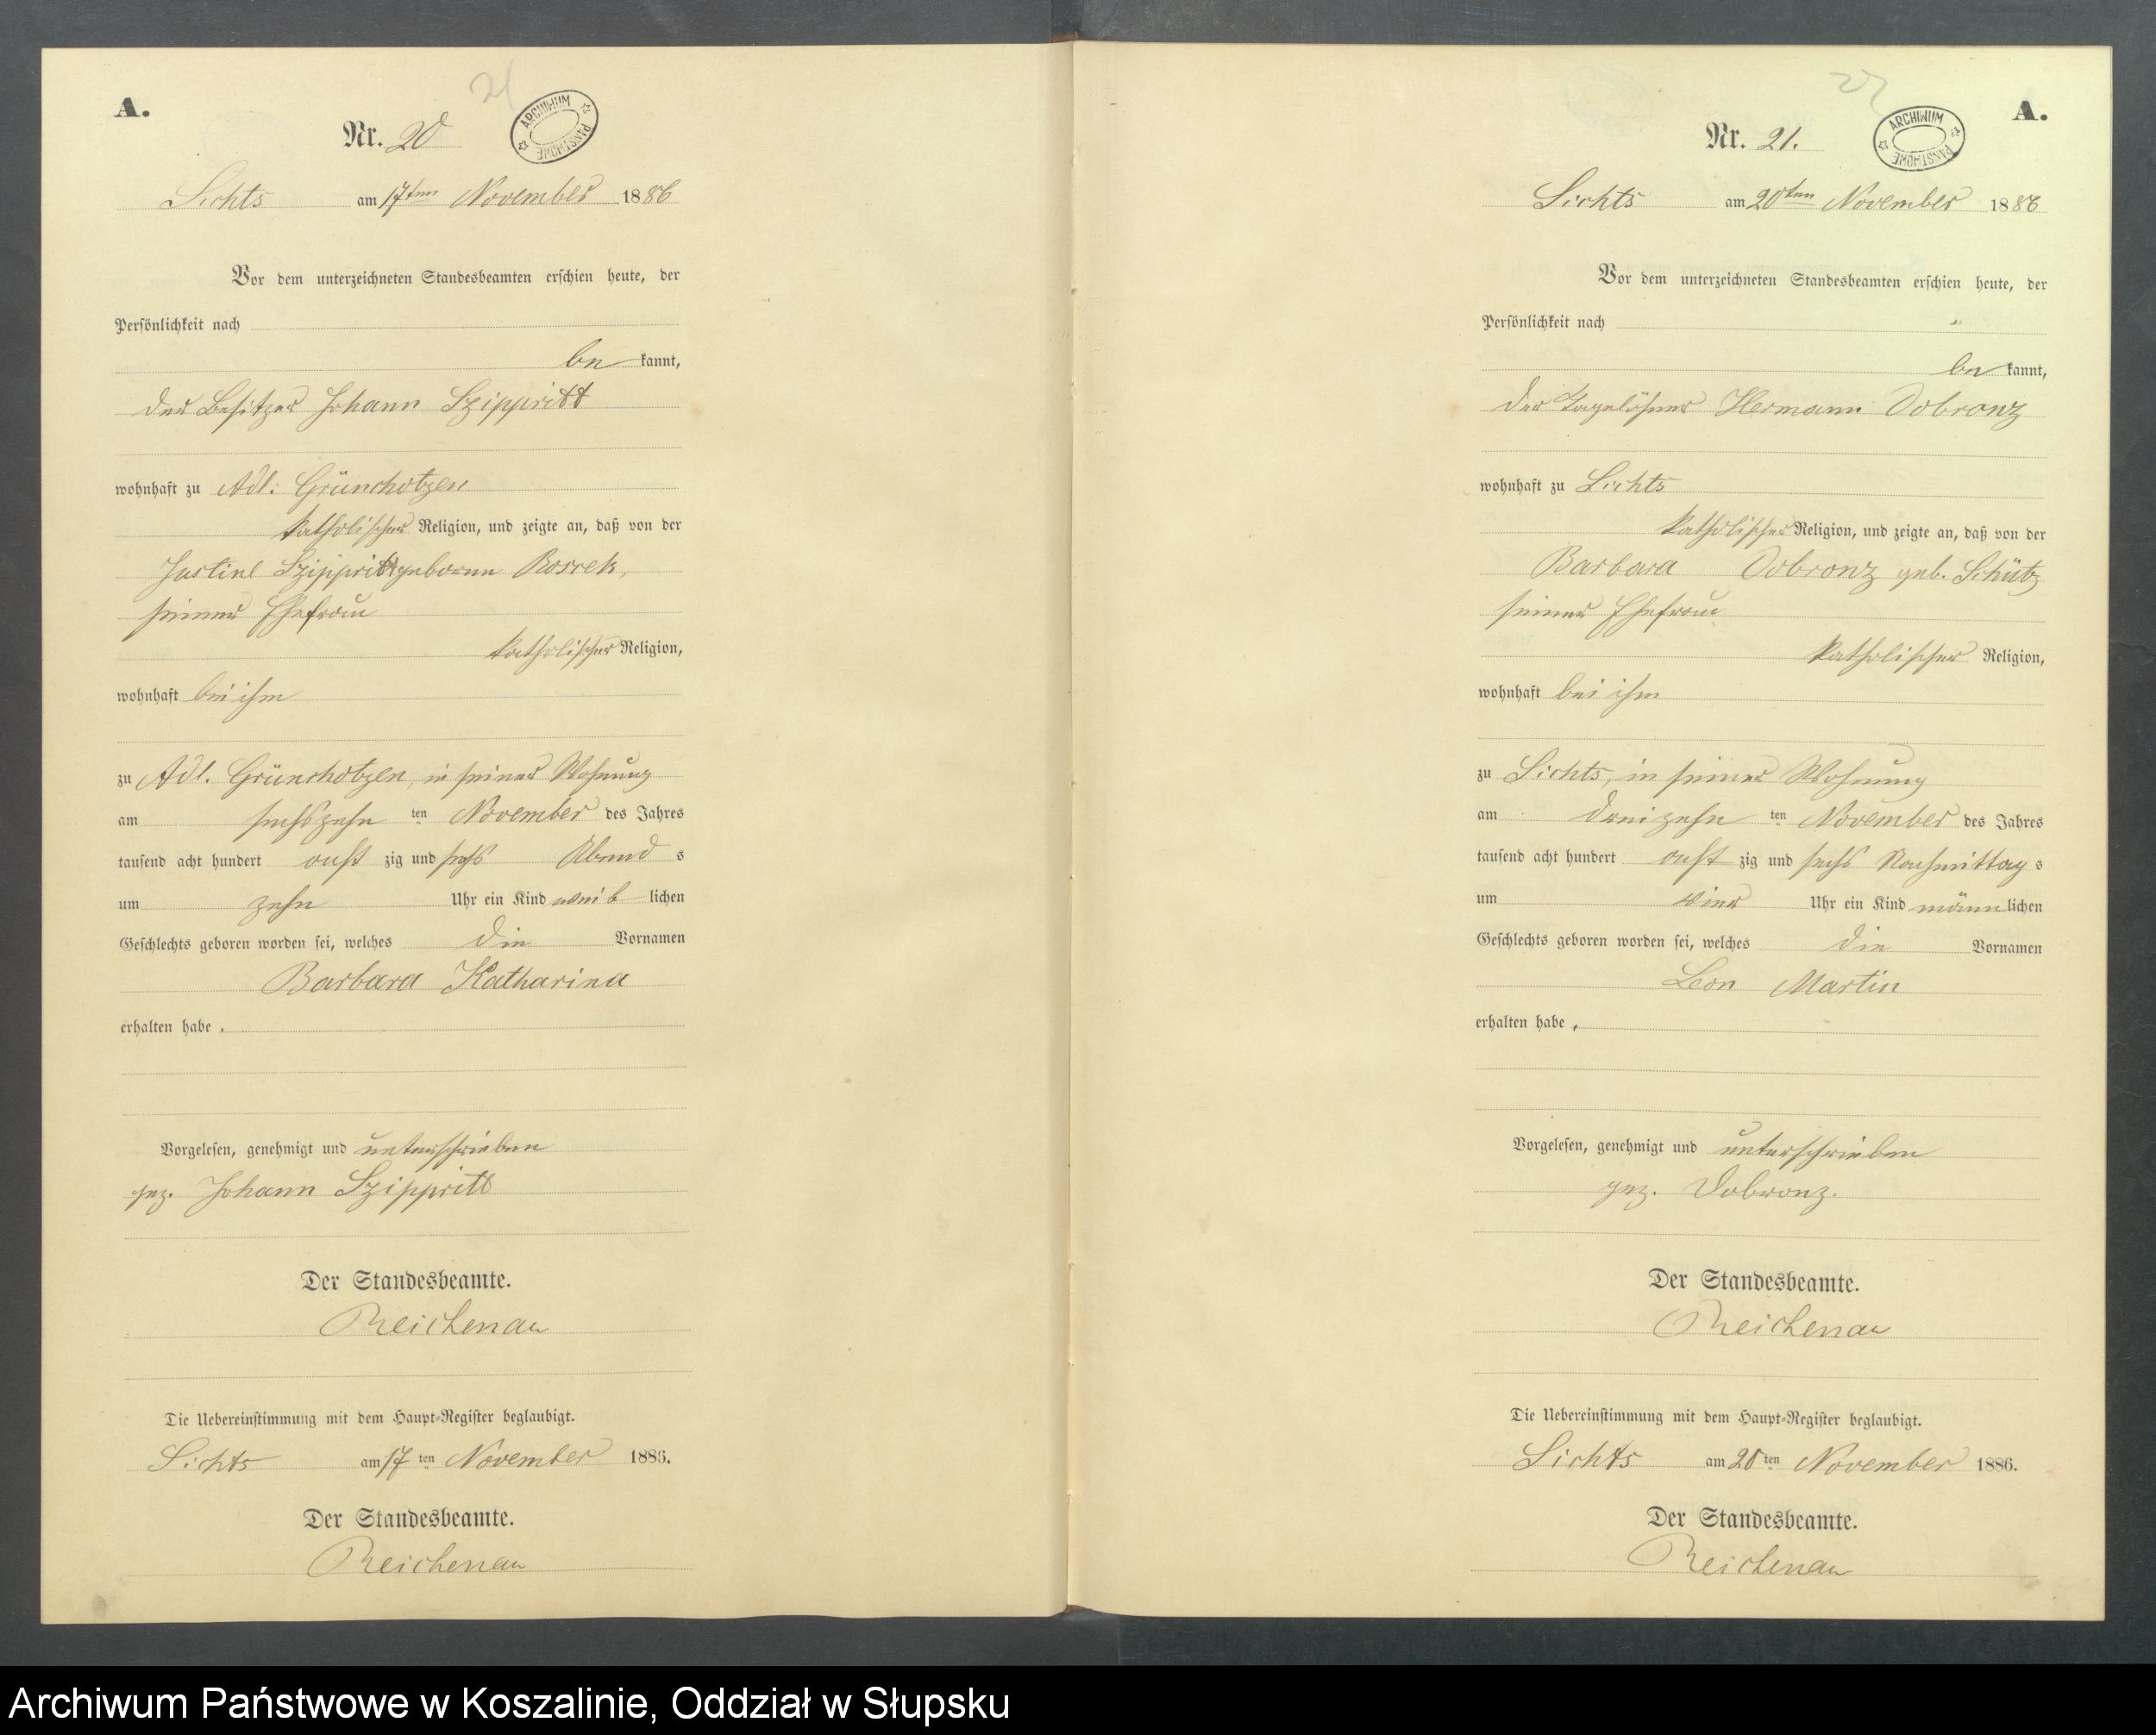 A.
21
Nr. 20
ARCHIWUM PAŃSTWOWE
Lichts am 17ten November 1886
Vor dem unterzeichneten Standesbeamten erschien heute, der
Persönlichkeit nach
be kannt,
der Besitzer Johann Szippritt
wohnhaft zu Adl. Grünchotzen
katholischer Religion, und zeigte an, daß von der
Justine Szippritt geborene Rossek,
seiner Ehefrau
katholischer Religion,
wohnhaft bei ihm
zu Adl. Grünchotzen, in seiner Wohnung
am sechszehn ten November des Jahres
tausend acht hundert acht zig und sechs Abend s
um zehn Uhr ein Kind weib lichen
Geschlechts geboren worden sei, welches die Vornamen
Barbara Katharina
erhalten habe.
Vorgelesen, genehmigt und unterschrieben
gez. Johann Szippritt
Der Standesbeamte.
Reichenau
Die Uebereinstimmung mit dem Haupt-Register beglaubigt.
Lichts am 17 ten November 1886.
Der Standesbeamte.
Reichenau
A.
Nr. 21.
ARCHIWUM PAŃSTWOWE
Lichts am 20ten November 1886
Vor dem unterzeichneten Standesbeamten erschien heute, der
Persönlichkeit nach
be kannt,
der Tagelöhner Hermann Dobronz
wohnhaft zu Lichts
katholischer Religion, und zeigte an, daß von der
Barbara Dobronz geb. Schütz
seiner Ehefrau
katholischer Religion,
wohnhaft bei ihm
zu Lichts, in seiner Wohnung
am dreizehn ten November des Jahres
tausend acht hundert acht zig und sechs Nachmittag s
um vier Uhr ein Kind männ lichen
Geschlechts geboren worden sei, welches die Vornamen
Leon Martin
erhalten habe.
Vorgelesen, genehmigt und unterschrieben
gez. Dobronz.
Der Standesbeamte.
Reichenau
Die Uebereinstimmung mit dem Haupt-Register beglaubigt.
Lichts am 20 ten November 1886.
Der Standesbeamte.
Reichenau
Archiwum Państwowe w Koszalinie, Oddział w Słupsku